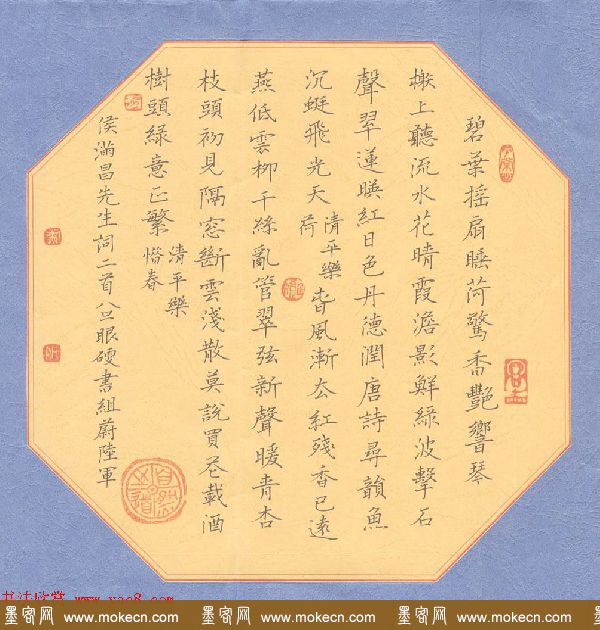 碧葉搖扇睡荷驚香艷響琴
榭上聽流水花晴霞澹影鮮綠波擊石
聲翠蓮暎紅日色丹德潤唐詩尋韻魚
沉蜓飛光天 清平樂 荷 春風漸去紅殘香已遠
燕低雲柳千絲亂管翠弦新聲暖青杏
枝頭初見隔窓斷雲淺散莫說買花載酒
樹頭綠意正繁 清平樂 惜春
侯滿昌先生詞二首 眼硬書組蔚陸軍
书法欣赏 www.yac8.com
墨客网 www.mokecn.com 墨客网 www.mokecn.com 墨客网 www.mokecn.com